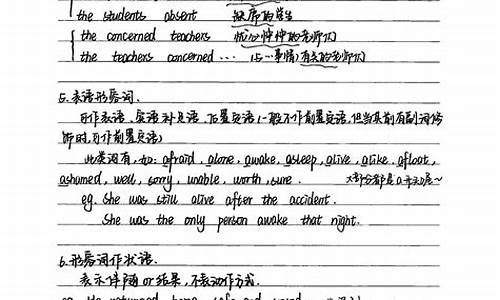 the students absent 缺席的学生
the concerned teachers 忧心忡忡的老师们
the teachers concerned ... (与…事情)有关的老师们
5. 表语形容词.
可作表语、宾语补足语、后置定语(一般不作前置定语,但当其前有副词修
饰时,可作前置定语)
此类词有,如: afraid, alone, awake, asleep, alive, alike, afloat,
ashamed, well, sorry, unable, worth, sure. 大部分都是a开头的~
eg. She was still alive after the accident.
She was the only person awake that night.
6. 形容词作状语.
表示伴随or结果,不表动作方式.
eg. He returned home, safe and